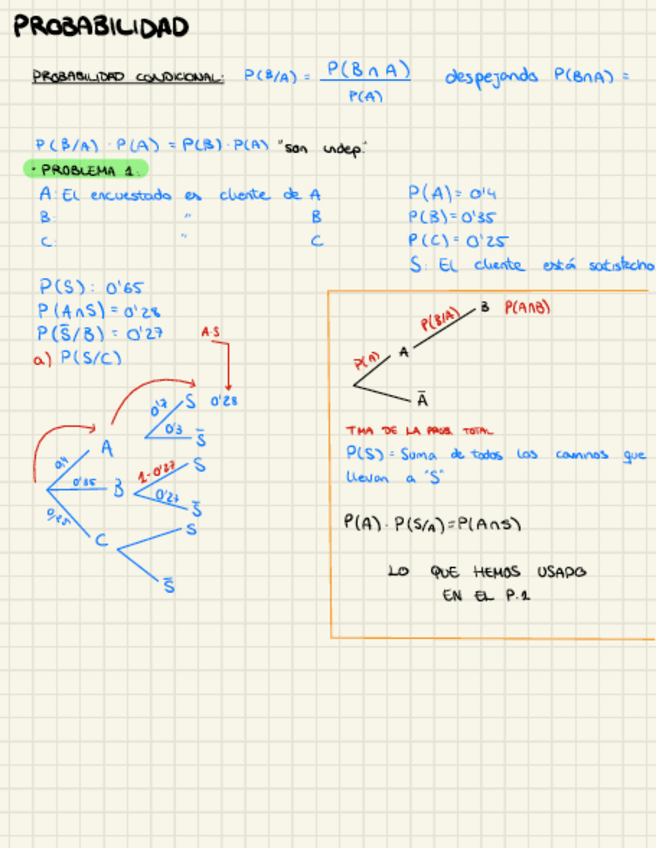 PROBABILIDAD
PROBABILIDAD CONDICIONAL: P(B/A) = P(B∩A) / P(A) despejando P(B∩A) =
P(B/A) · P(A) = P(B) · P(A) "son indep."
· PROBLEMA 1.
A: El encuestado es cliente de A P(A) = 0'4
B: " B P(B) = 0'35
C: " C P(C) = 0'25
S: El cliente está satisfecho
P(S): 0'65
P(A∩S) = 0'28
P(S̄/B) = 0'27
a) P(S/C)
A·S
0'7 S 0'28
0'3 S̄
0'4 A
0'35 B
1-0'27 S
0'27 S̄
0'25 C
S
S̄
P(A) A P(B/A) B P(A∩B)
Ā
TMA DE LA PROB. TOTAL
P(S) = Suma de todos los caminos que
llevan a "S"
P(A) · P(S/A) = P(A∩S)
LO QUE HEMOS USADO
EN EL P.1